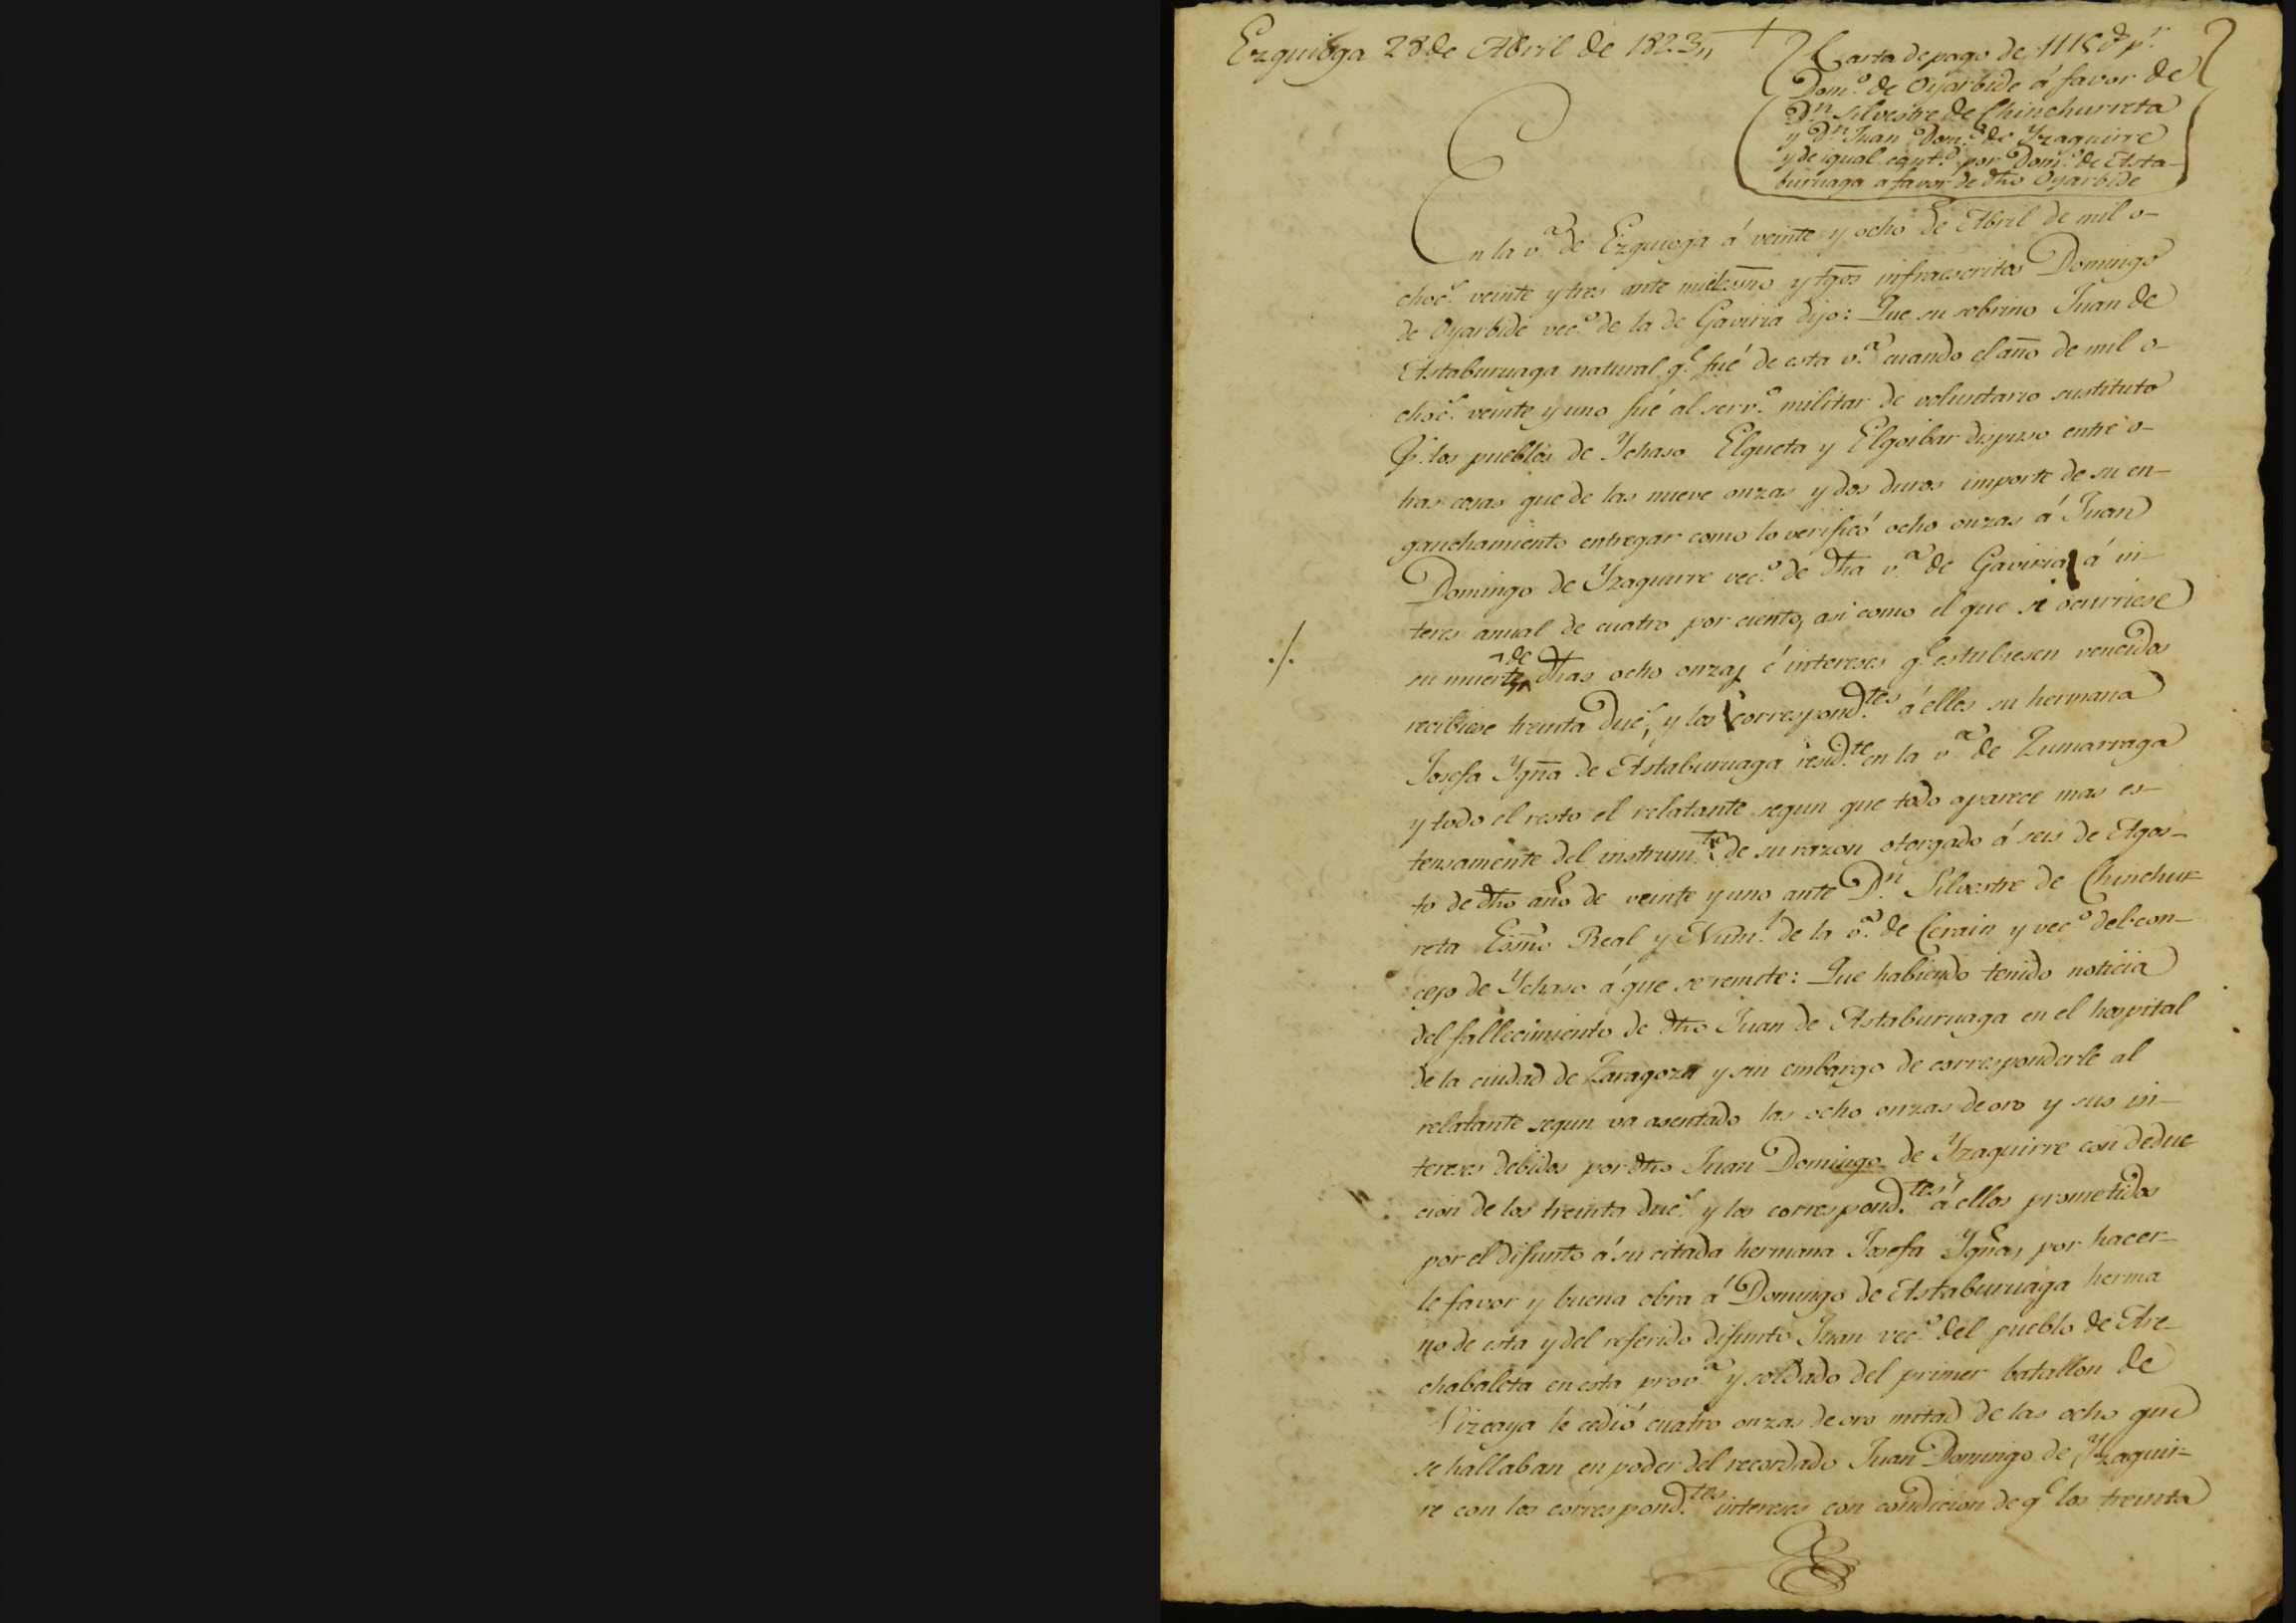 Ezquioga 28 de Abril de 1823,,
Carta de pago de 1115 d.s p.r
Dom.o de Oyarbide á favor de
Dn Silvestre de Chinchurreta
y Dn Juan Dom.o de Yzaguirre
y de igual cant.d por Dom.o de Asta-
buruaga a favor de dho Oyarbide
En la v.a de Ezquioga á veinte y ocho de Abril de mil o-
choc.s veinte y tres ante mi el esno y tgos infraescritos Domingo
de Oyarbide vec.o de la de Gaviria dijo: Que su sobrino Juan de
Astaburuaga natural q.e fué de esta v.a cuando el año de mil o-
choc.s veinte y uno fué al serv.o militar de voluntario sustituto
p.r los pueblos de Ychaso Elgueta y Elgoibar dispuso entre o-
tras cosas que de las nueve onzas y dos duros importe de su en-
ganchamiento entregar como lo verificó ocho onzas á Juan
Domingo de Yzaguirre vec.o de dha v.a de Gaviria á in-
teres anual de cuatro por ciento, asi como el que si ocurriese
su muerte de dhas ocho onzas é intereses q.e estubiesen vencidos
./.
recibiese treinta duc.s, y los correspond.tes á ellos su hermana
Josefa Ygna de Astaburuaga resid.te en la v.a de Zumarraga
y todo el resto el relatante segun que todo aparece mas es-
tensamente del instrum.to de su razon otorgado á seis de Agos-
to de dho año de veinte y uno ante Dn Silvestre de Chinchur-
reta Esno Real y Num.l de la v.a de Cerain y vec.o del con-
cejo de Ychaso á que se remite: Que habiendo tenido noticia
del fallecimiento de dho Juan de Astaburuaga en el hospital
de la ciudad de Zaragoza y sin embargo de corresponderle al
relatante segun va asentado las ocho onzas de oro y sus in-
tereses debidos por dho Juan Domingo de Yzaguirre con deduc-
cion de los treinta duc.s y los correspond.tes á ellos prometidos
por el difunto á su citada hermana Josefa Ygna, por hacer-
le favor y buena obra á Domingo de Astaburuaga herma
no de esta y del referido difunto Juan vec.o del pueblo de Are-
chabaleta en esta prov.a y soldado del primer batallon de
Vizcaya le cedió cuatro onzas de oro mitad de las ocho que
se hallaban en poder del recordado Juan Domingo de Yzaguir-
re con los correspond.tes intereses con condicion de q.e los treinta